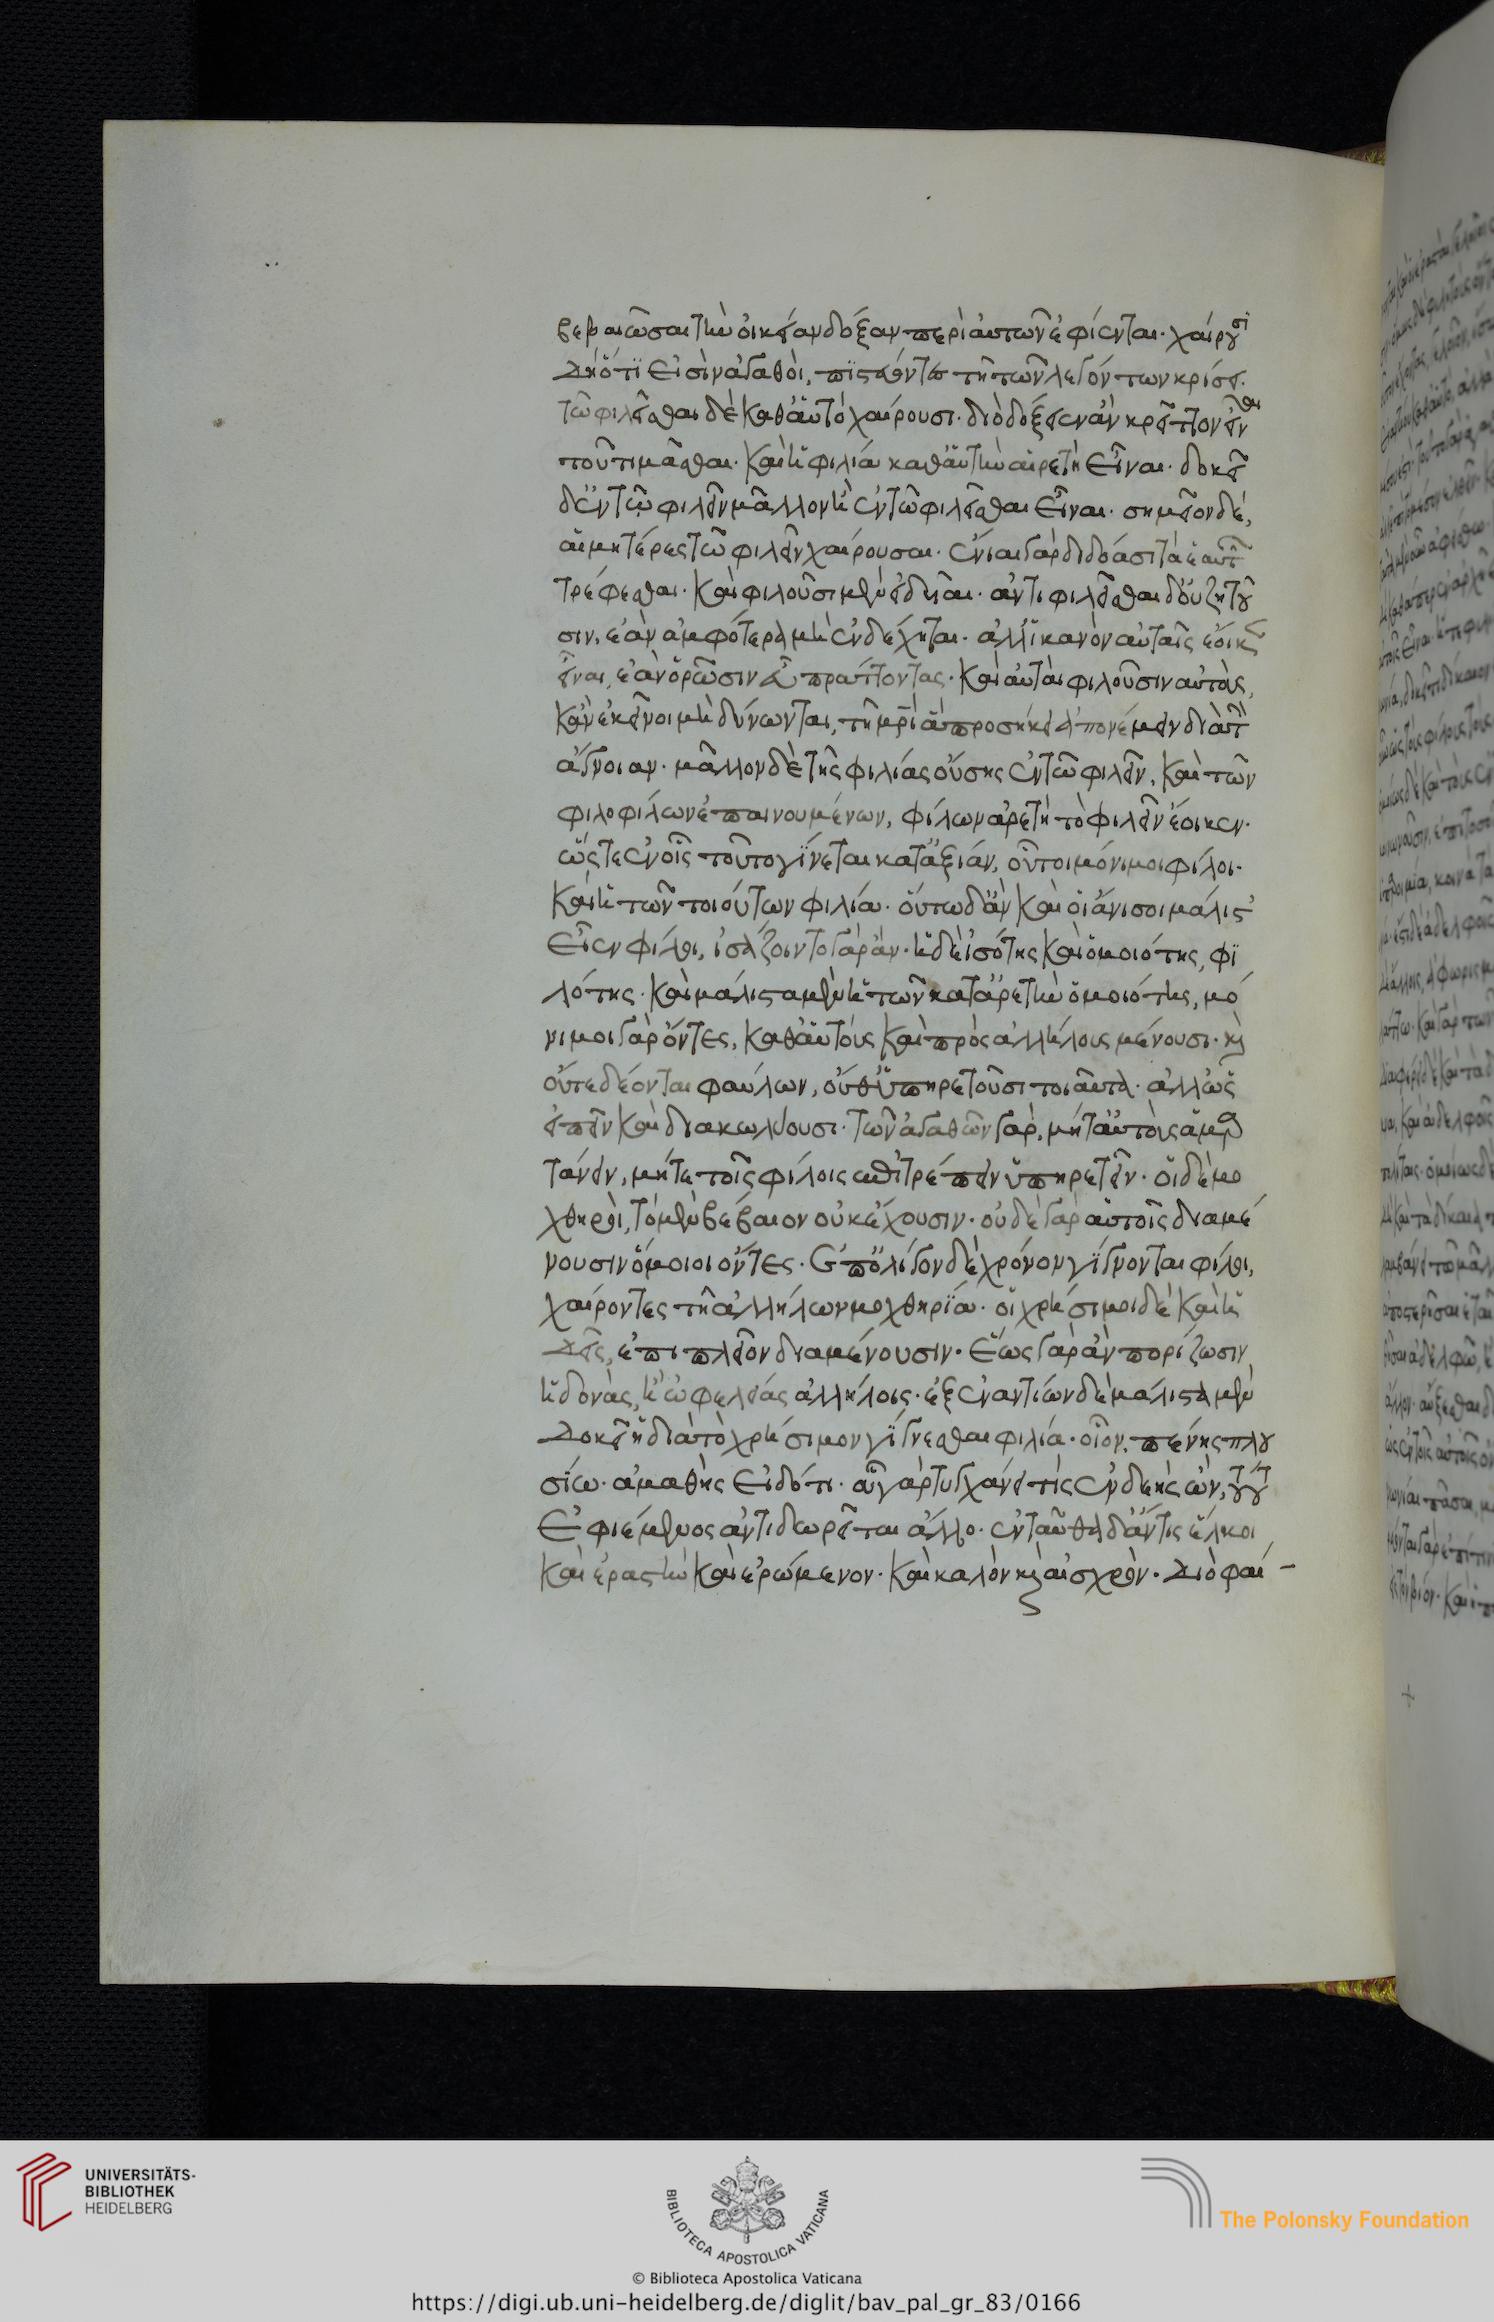 βεβαιῶσαι τὴν οἰκείαν δόξαν περὶ αὑτῶν ἐφίενται· χαίρουσι
δὴ ὅτι εἰσὶν ἀγαθοὶ, πιστεύοντες τῇ τῶν λεγόντων κρίσει.
τῷ φιλεῖσθαι δὲ καθ' αὑτὸ χαίρουσι· διὸ δόξειεν ἂν κρεῖττον εἶναι
τοῦ τιμᾶσθαι· καὶ ἡ φιλία καθ' αὑτὴν αἱρετὴ εἶναι. δοκεῖ
δ' ἐν τῷ φιλεῖν μᾶλλον ἢ ἐν τῷ φιλεῖσθαι εἶναι· σημεῖον δέ,
αἱ μητέρες τῷ φιλεῖν χαίρουσαι· ἔνιαι γὰρ διδόασι τὰ ἑαυτῶν
τρέφεσθαι· καὶ φιλοῦσι μὲν εἰδυῖαι· ἀντιφιλεῖσθαι δ' οὐ ζητοῦ
σιν, ἐὰν ἀμφότερα μὴ ἐνδέχηται· ἀλλ' ἱκανὸν αὐταῖς ἔοικεν
εἶναι, ἐὰν ὁρῶσιν εὖ πράττοντας· καὶ αὐταὶ φιλοῦσιν αὐτοὺς,
κἂν ἐκεῖνοι μὴ δύνωνται, τῇ μητρὶ ἃ προσήκει ἀπονέμειν διὰ τὴν
ἄγνοιαν· μᾶλλον δὲ τῆς φιλίας οὔσης ἐν τῷ φιλεῖν, καὶ τῶν
φιλοφίλων ἐπαινουμένων, φίλων ἀρετῇ τὸ φιλεῖν ἔοικεν·
ὥστε ἐν οἷς τοῦτο γίνεται κατ' ἀξίαν, οὗτοι μόνιμοι φίλοι·
καὶ ἡ τῶν τοιούτων φιλία· οὕτω δ' ἂν καὶ οἱ ἄνισοι μάλιστ'
εἶεν φίλοι, ἰσάζοιντο γὰρ ἄν· ἡ δὲ ἰσότης καὶ ὁμοιότης, φι
λότης· καὶ μάλιστα μὲν ἡ τῶν κατ' ἀρετὴν ὁμοιότης, μό
νιμοι γὰρ ὄντες, καθ' αὑτοὺς καὶ πρὸς ἀλλήλους μένουσι· καὶ
οὔτε δέονται φαύλων, οὔθ' ὑπηρετοῦσι τοιαῦτα· ἀλλ' ὡς
εἰπεῖν καὶ διακωλύουσι· τῶν ἀγαθῶν γὰρ, μήτ' αὐτοὺς ἁμαρ
τάνειν, μήτε τοῖς φίλοις ἐπιτρέπειν ὑπηρετεῖν· οἱ δὲ μο
χθηροὶ, τὸ μὲν βέβαιον οὐκ ἔχουσιν· οὐδὲ γὰρ αὑτοῖς διαμέ
νουσιν ὅμοιοι ὄντες· ἐπ' ὀλίγον δὲ χρόνον γίγνονται φίλοι,
χαίροντες τῇ ἀλλήλων μοχθηρίᾳ· οἱ χρήσιμοι δὲ καὶ ἡ
δεῖς, ἐπὶ πλεῖον διαμένουσιν· ἕως γὰρ ἂν πορίζωσιν
ἡδονὰς, ἢ ὠφελείας ἀλλήλοις· ἐξ ἐναντίων δὲ μάλιστα μὲν
δοκεῖ ἡ διὰ τὸ χρήσιμον γίγνεσθαι φιλία· οἷον, πένης πλου
σίῳ· ἀμαθὴς εἰδότι· οὗ γὰρ τυγχάνει τις ἐνδεὴς ὢν, τούτου
ἐφιέμενος ἀντιδωρεῖται ἄλλο· ἐνταῦθα δ' ἄν τις ἕλκοι
καὶ ἐραστὴν καὶ ἐρώμενον· καὶ καλὸν καὶ αἰσχρὸν· διὸ φαί-
UNIVERSITÄTS-
BIBLIOTHEK
HEIDELBERG
BIBLIOTECA APOSTOLICA VATICANA
The Polonsky Foundation
© Biblioteca Apostolica Vaticana
https://digi.ub.uni-heidelberg.de/diglit/bav_pal_gr_83/0166